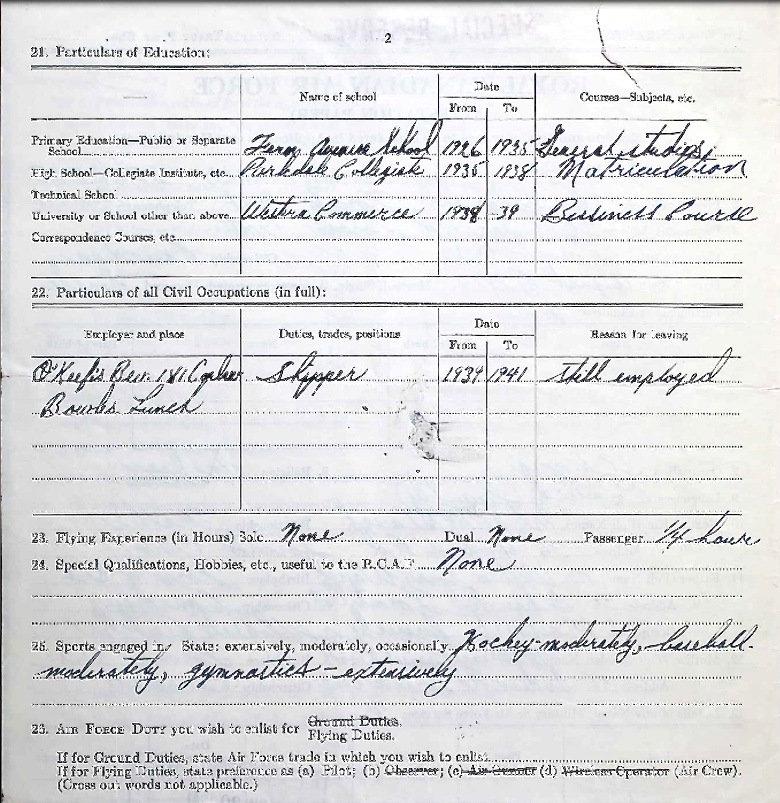 2
21. Particulars of Education:
Name of school Date Courses—Subjects, etc.
From To
Primary Education—Public or Separate
School Avenue School 1926 1935 General studies,
High School—Collegiate Institute, etc. Parkdale Collegiate 1935 1938 Matriculation
Technical School
University or School other than above Western Commerce 1938 39 Business Course
Correspondence Courses, etc.
22. Particulars of all Civil Occupations (in full):
Employer and place Duties, trades, positions Date Reason for leaving
From To
O'Keefe's Bev. 181 Shipper 1939 1941 still employed
Bowles Lunch
23. Flying Experience (in Hours) Solo None Dual None Passenger 1/4 hour
24. Special Qualifications, Hobbies, etc., useful to the R.C.A.F. None
25. Sports engaged in. State: extensively, moderately, occasionally. Hockey-moderately, baseball-
moderately, gymnastics - extensively
26. AIR FORCE DUTY you wish to enlist for Ground Duties.
Flying Duties.
If for Ground Duties, state Air Force trade in which you wish to enlist
If for Flying Duties, state preference as (a) Pilot; (b) Observer; (c) Air Gunner (d) Wireless Operator (Air Crew).
(Cross out words not applicable.)